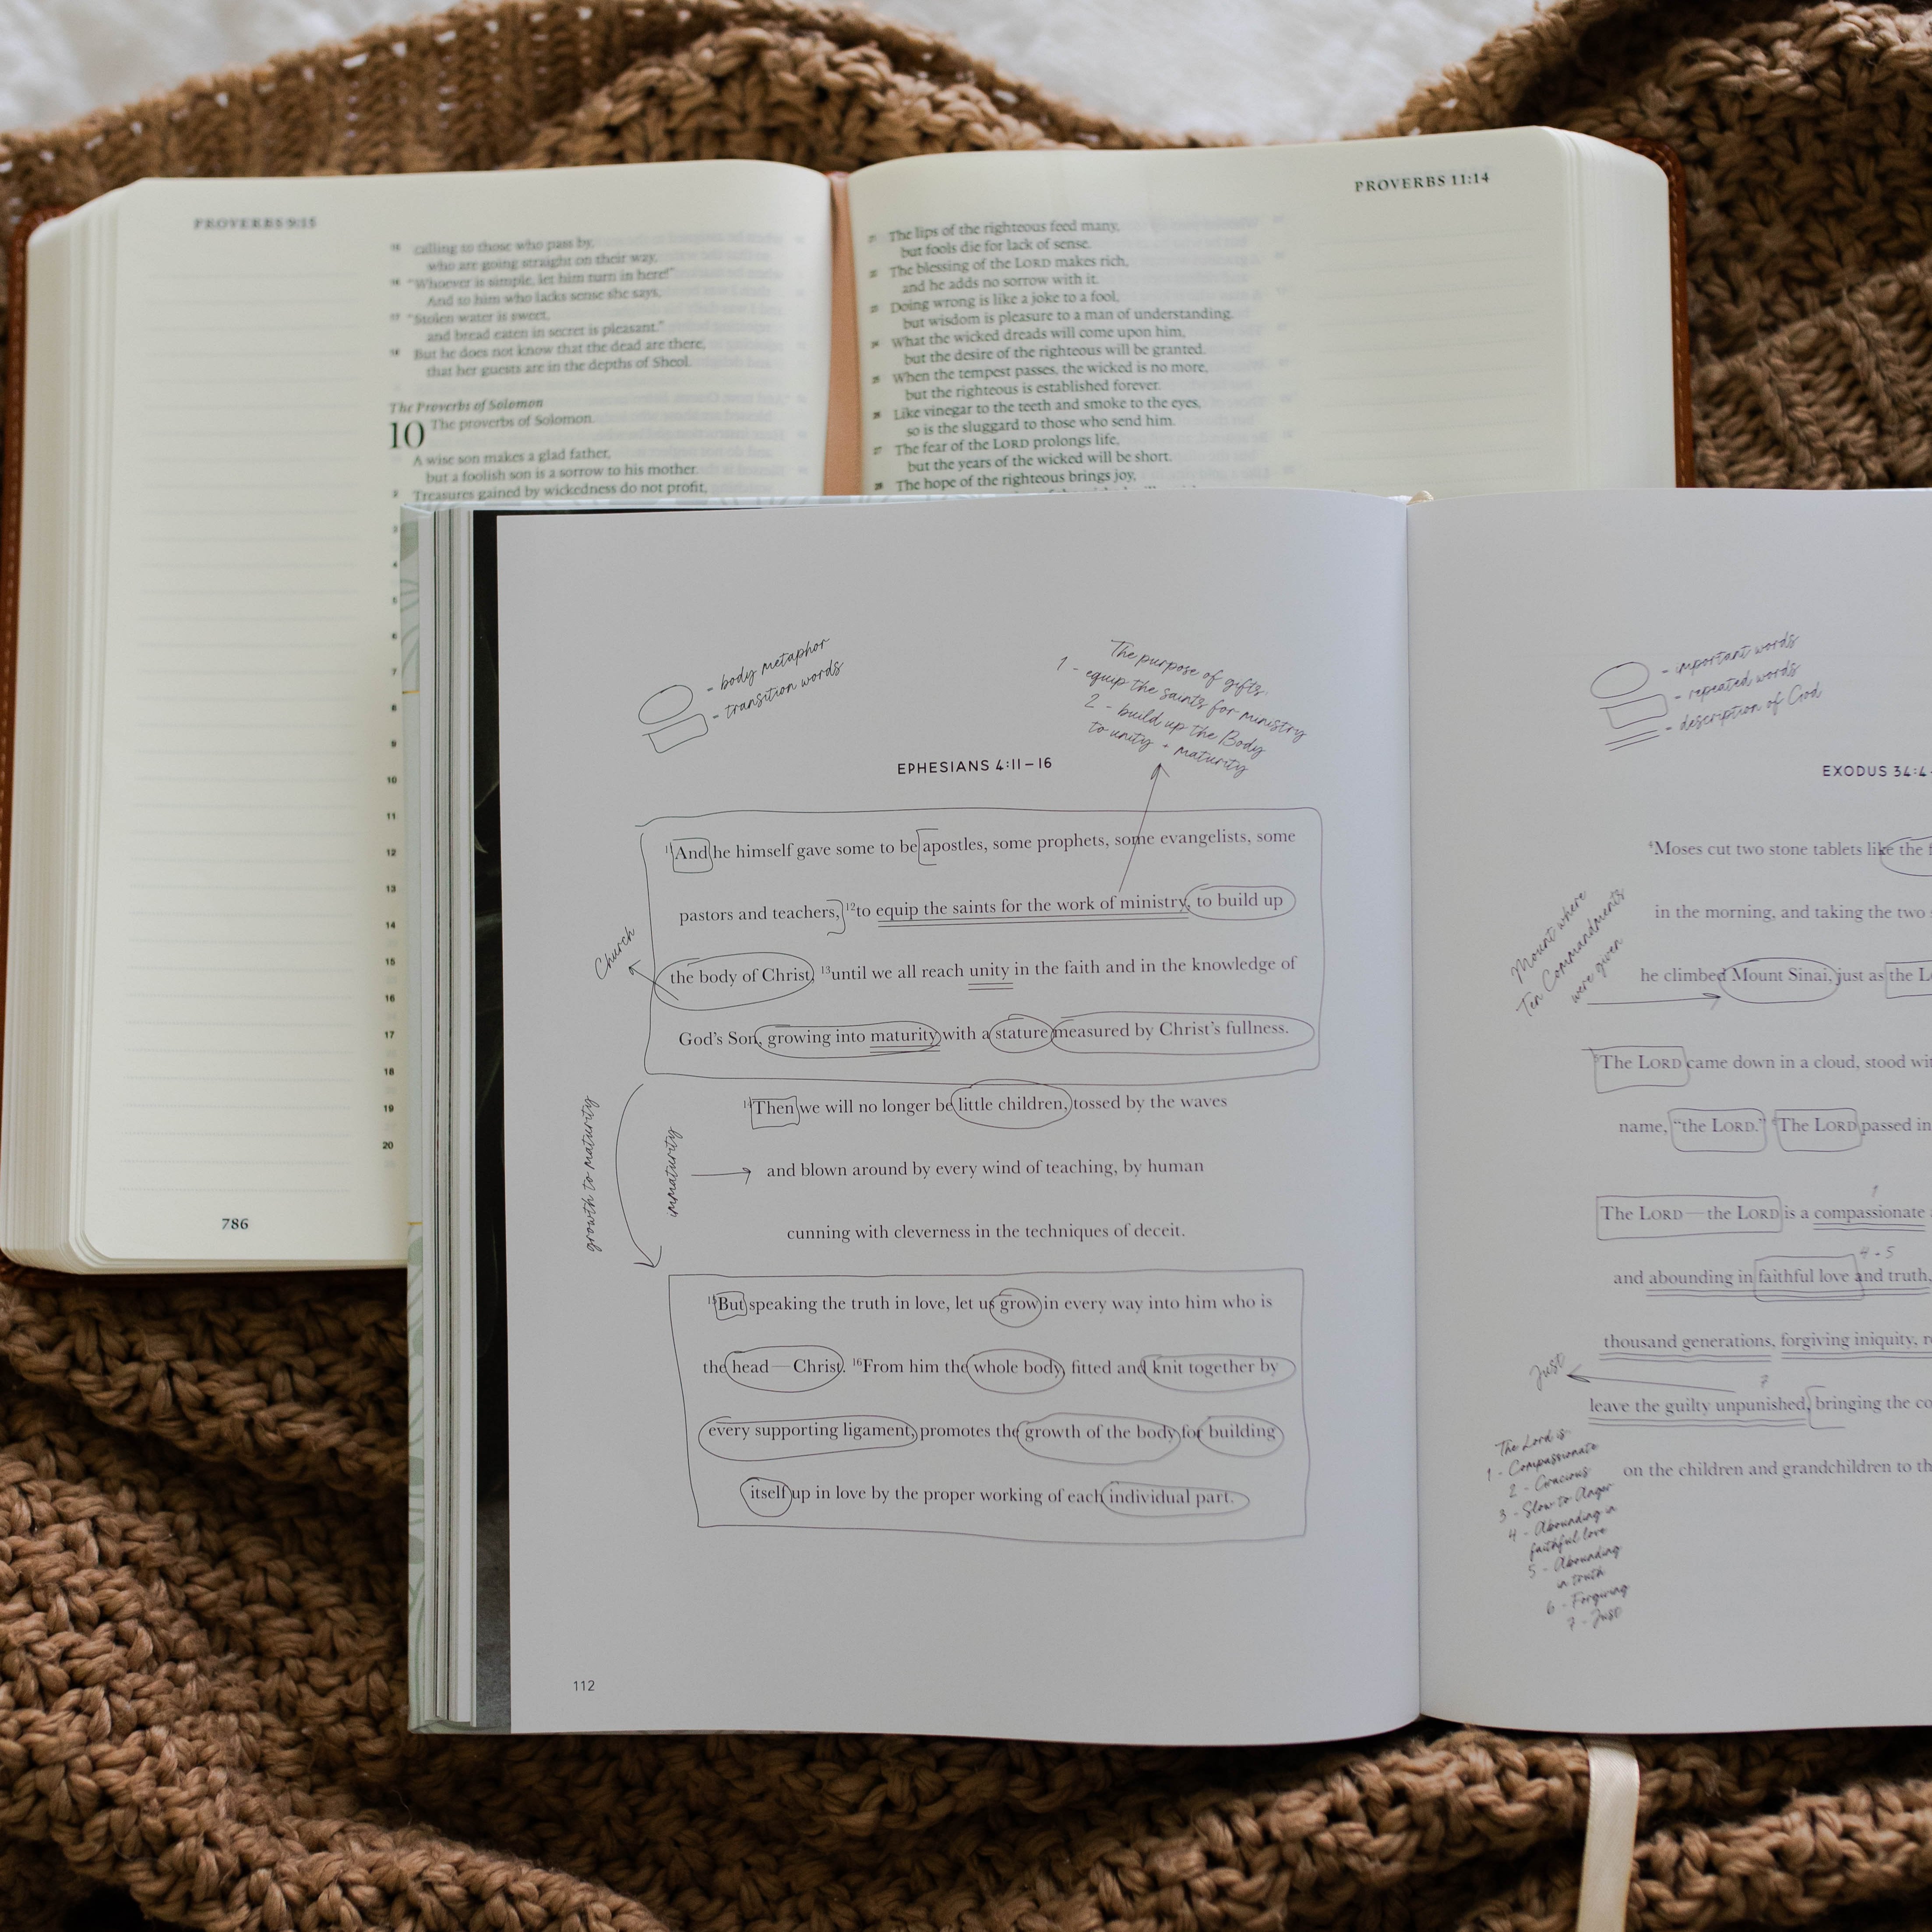 PROVERBS 9:15
calling to those who pass by,
who are going straight on their way,
16 "Whoever is simple, let him turn in here!"
And to him who lacks sense she says,
17 "Stolen water is sweet,
and bread eaten in secret is pleasant."
18 But he does not know that the dead are there,
that her guests are in the depths of Sheol.
The Proverbs of Solomon
10 The proverbs of Solomon.
A wise son makes a glad father,
but a foolish son is a sorrow to his mother.
2 Treasures gained by wickedness do not profit,
3
4
5
6
7
8
9
10
11
12
13
14
15
16
17
18
19
20
786
PROVERBS 11:14
21 The lips of the righteous feed many,
but fools die for lack of sense.
22 The blessing of the LORD makes rich,
and he adds no sorrow with it.
23 Doing wrong is like a joke to a fool,
but wisdom is pleasure to a man of understanding.
24 What the wicked dreads will come upon him,
but the desire of the righteous will be granted.
25 When the tempest passes, the wicked is no more,
but the righteous is established forever.
26 Like vinegar to the teeth and smoke to the eyes,
so is the sluggard to those who send him.
27 The fear of the LORD prolongs life,
but the years of the wicked will be short.
28 The hope of the righteous brings joy,
= body metaphor
= transition words
The purpose of gifts:
1 - equip the saints for ministry
2 - build up the Body
to unity + maturity
EPHESIANS 4:11–16
11And he himself gave some to be apostles, some prophets, some evangelists, some
pastors and teachers, 12to equip the saints for the work of ministry, to build up
Church
the body of Christ, 13until we all reach unity in the faith and in the knowledge of
God's Son, growing into maturity with a stature measured by Christ's fullness.
growth to maturity
14Then we will no longer be little children, tossed by the waves
immaturity
and blown around by every wind of teaching, by human
cunning with cleverness in the techniques of deceit.
15But speaking the truth in love, let us grow in every way into him who is
the head—Christ. 16From him the whole body, fitted and knit together by
every supporting ligament, promotes the growth of the body for building
itself up in love by the proper working of each individual part.
112
= important words
= repeated words
= description of God
EXODUS 34:4-
4Moses cut two stone tablets like the
in the morning, and taking the two
Mount where
Ten Commandments
were given
he climbed Mount Sinai, just as the
5The LORD came down in a cloud, stood
name, "the LORD." 6The LORD passed in
1
The LORD—the LORD is a compassionate
4 - 5
and abounding in faithful love and truth,
thousand generations, forgiving iniquity,
Just
7
leave the guilty unpunished, bringing the
on the children and grandchildren to
The Lord is:
1 - Compassionate
2 - Gracious
3 - Slow to Anger
4 - Abounding in
faithful love
5 - Abounding
in truth
6 - Forgiving
7 - Just